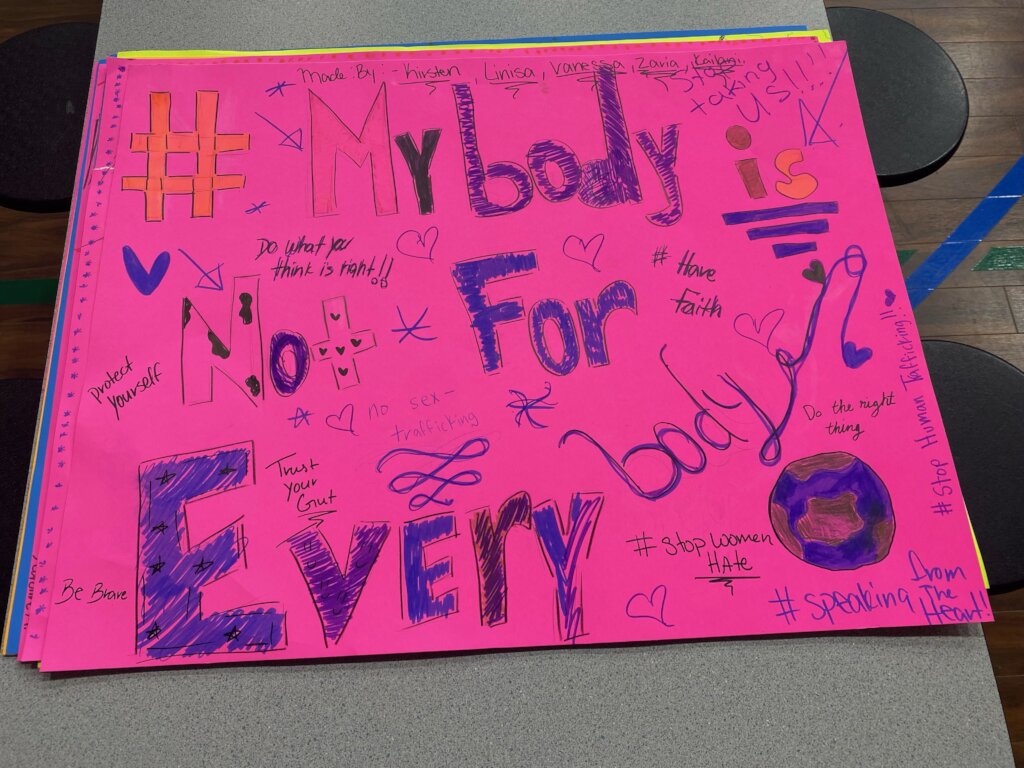 Made By:- Kirsten, Linisa, Vanesssa, Zaria, Kailani
Stop
taking
us!!!
# My body is
Do What you
think is right!!
# Have
Faith
Not For
protect
yourself
no sex-
trafficking
body
Do the right
thing
# Stop Human Tafficking!!
Trust
your
Gut
Every
# Stop Women
HAte
Be Brave
# speaking From
The
Heart!